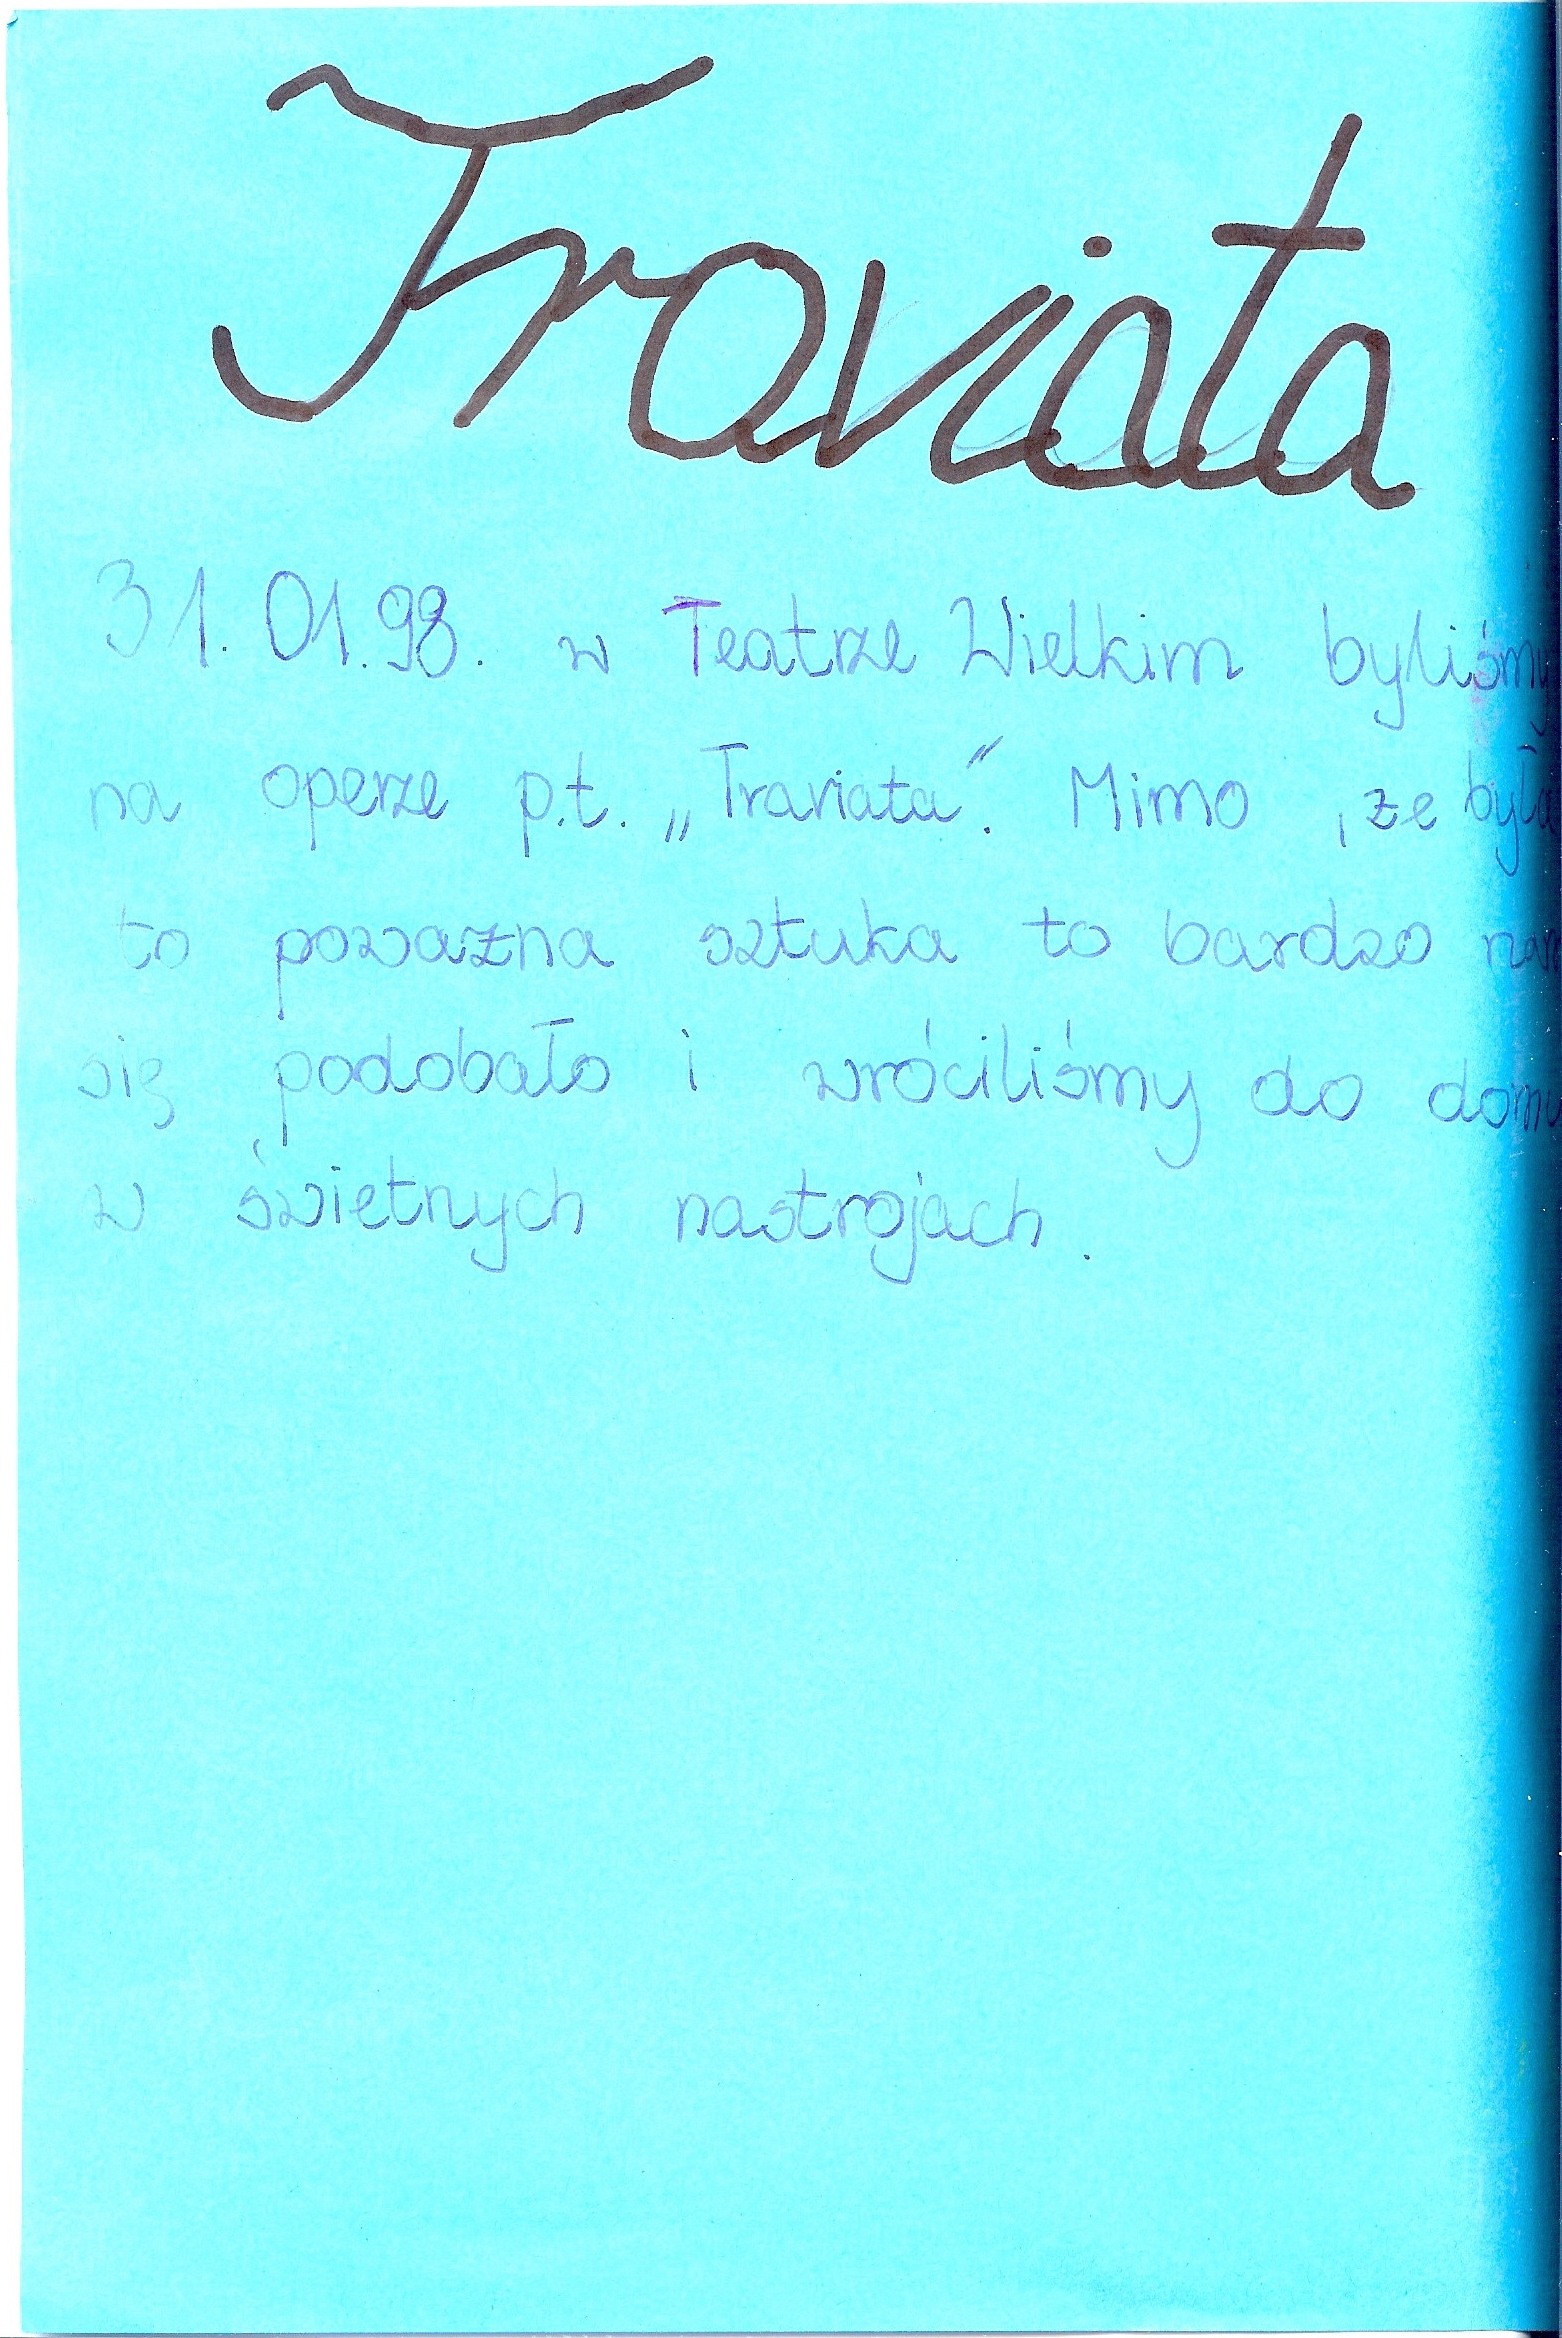 Traviata
31.01.98. w Teatrze Wielkim byliśmy
na operze p.t. „Traviata”. Mimo , że była
to poważna sztuka to bardzo nam
się podobało i wróciliśmy do domu
w świetnych nastrojach.